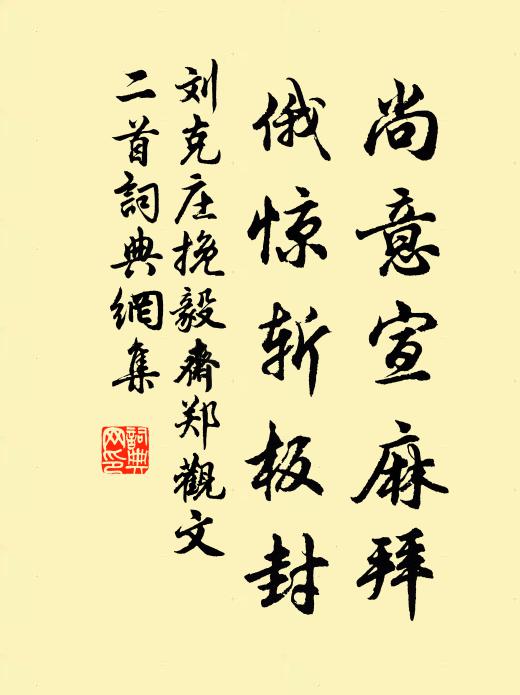 尚意宣麻拜
俄惊斩板封
刘克庄挽毅齋郑觀文
二首詞典網集
詞典
网印